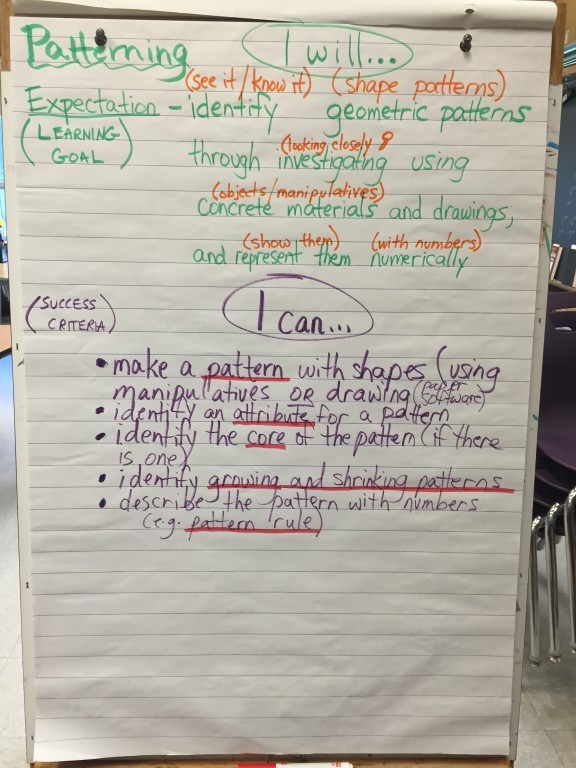 Patterning I will...
(see it/know it) (shape patterns)
Expectation - identify geometric patterns
(LEARNING GOAL)
(looking closely &
through investigating using
(objects/manipulatives)
concrete materials and drawings,
(show them) (with numbers)
and represent them numerically
(SUCCESS CRITERIA)
I can...
• make a pattern with shapes (using
manipulatives OR drawing (paper software)
• identify an attribute for a pattern
• identify the core of the pattern (if there
is one)
• identify growing and shrinking patterns
• describe the pattern with numbers
(e.g. pattern rule)